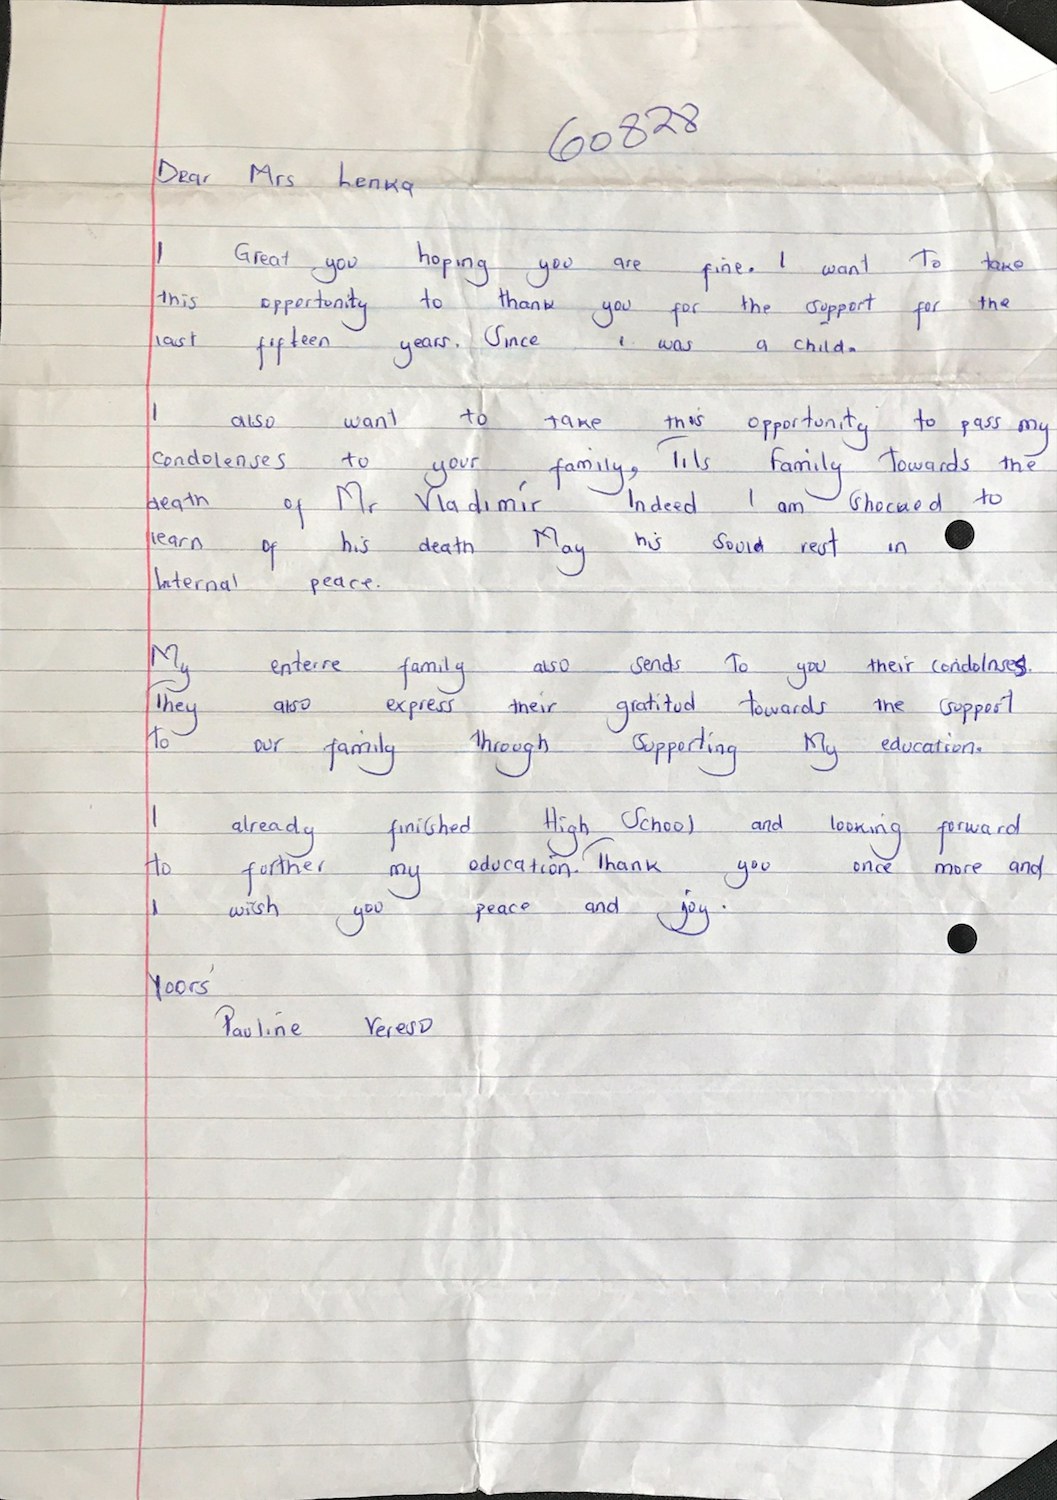 60828
Dear Mrs Lenka
I Great you hoping you are fine. I want To take
this oppertunity to thank you for the support for the
last fifteen years. Since i was a child.
I also want to take this opportunity to pass my
condolenses to your family, Tils Family Towards the
death of Mr Vladimir Indeed I am Shocked to
learn of his death May his Sould rest in
Internal peace.
My enterre family also sends To you their condolnses.
They also express their gratitud towards the support
to our family through supporting My education.
I already finished High School and looking forward
to forther my education. Thank you once more and
I wish you peace and joy.
Yoors
Pauline Vereso